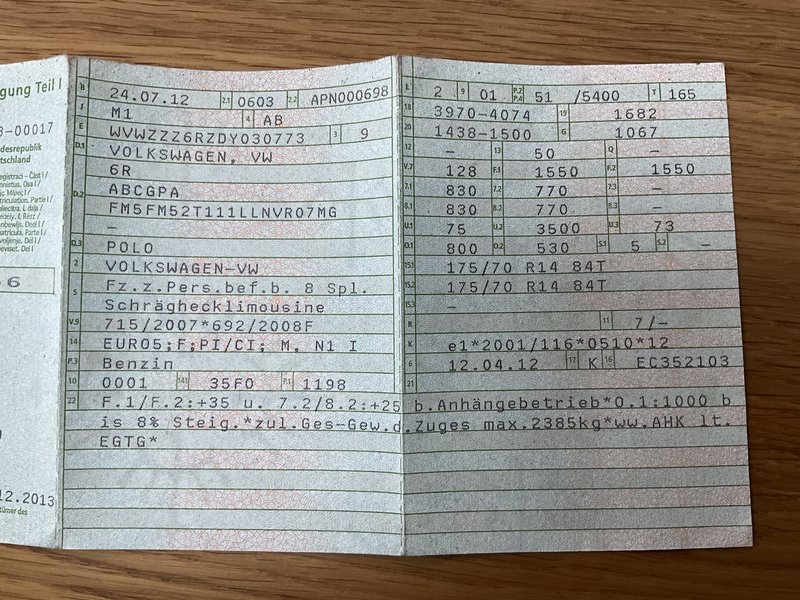 gung Teil I
3-00017
desrepublik
tschland
6
12.2013
B 24.07.12 2.1 0603 2.2 APN000698
J M1 4 AB
E WVWZZZ6RZDY030773 3 9
D.1 VOLKSWAGEN, VW
6R
D.2 ABCGPA
FM5FM52T111LLNVR07MG
–
D.3 POLO
2 VOLKSWAGEN-VW
5 Fz.z.Pers.bef.b. 8 Spl.
Schräghecklimousine
V.9 715/2007*692/2008F
14 EURO5;F;PI/CI; M, N1 I
P.3 Benzin
10 0001 14.1 35F0 P.1 1198
L 2 9 01 P.2 P.4 51 /5400 T 165
18 3970-4074 19 1682
20 1438-1500 G 1067
12 – 13 50 Q –
V.7 128 F.1 1550 F.2 1550
7.1 830 7.2 770 7.3 –
8.1 830 8.2 770 8.3 –
U.1 75 U.2 3500 U.3 73
O.1 800 O.2 530 S.1 5 S.2 –
15.1 175/70 R14 84T
15.2 175/70 R14 84T
15.3 –
R 11 7/–
K e1*2001/116*0510*12
6 12.04.12 17 K 16 EC352103
21
22 F.1/F.2:+35 u. 7.2/8.2:+25 b.Anhängebetrieb*O.1:1000 b
is 8% Steig.*zul.Ges-Gew.d.Zuges max.2385kg*ww.AHK lt.
EGTG*